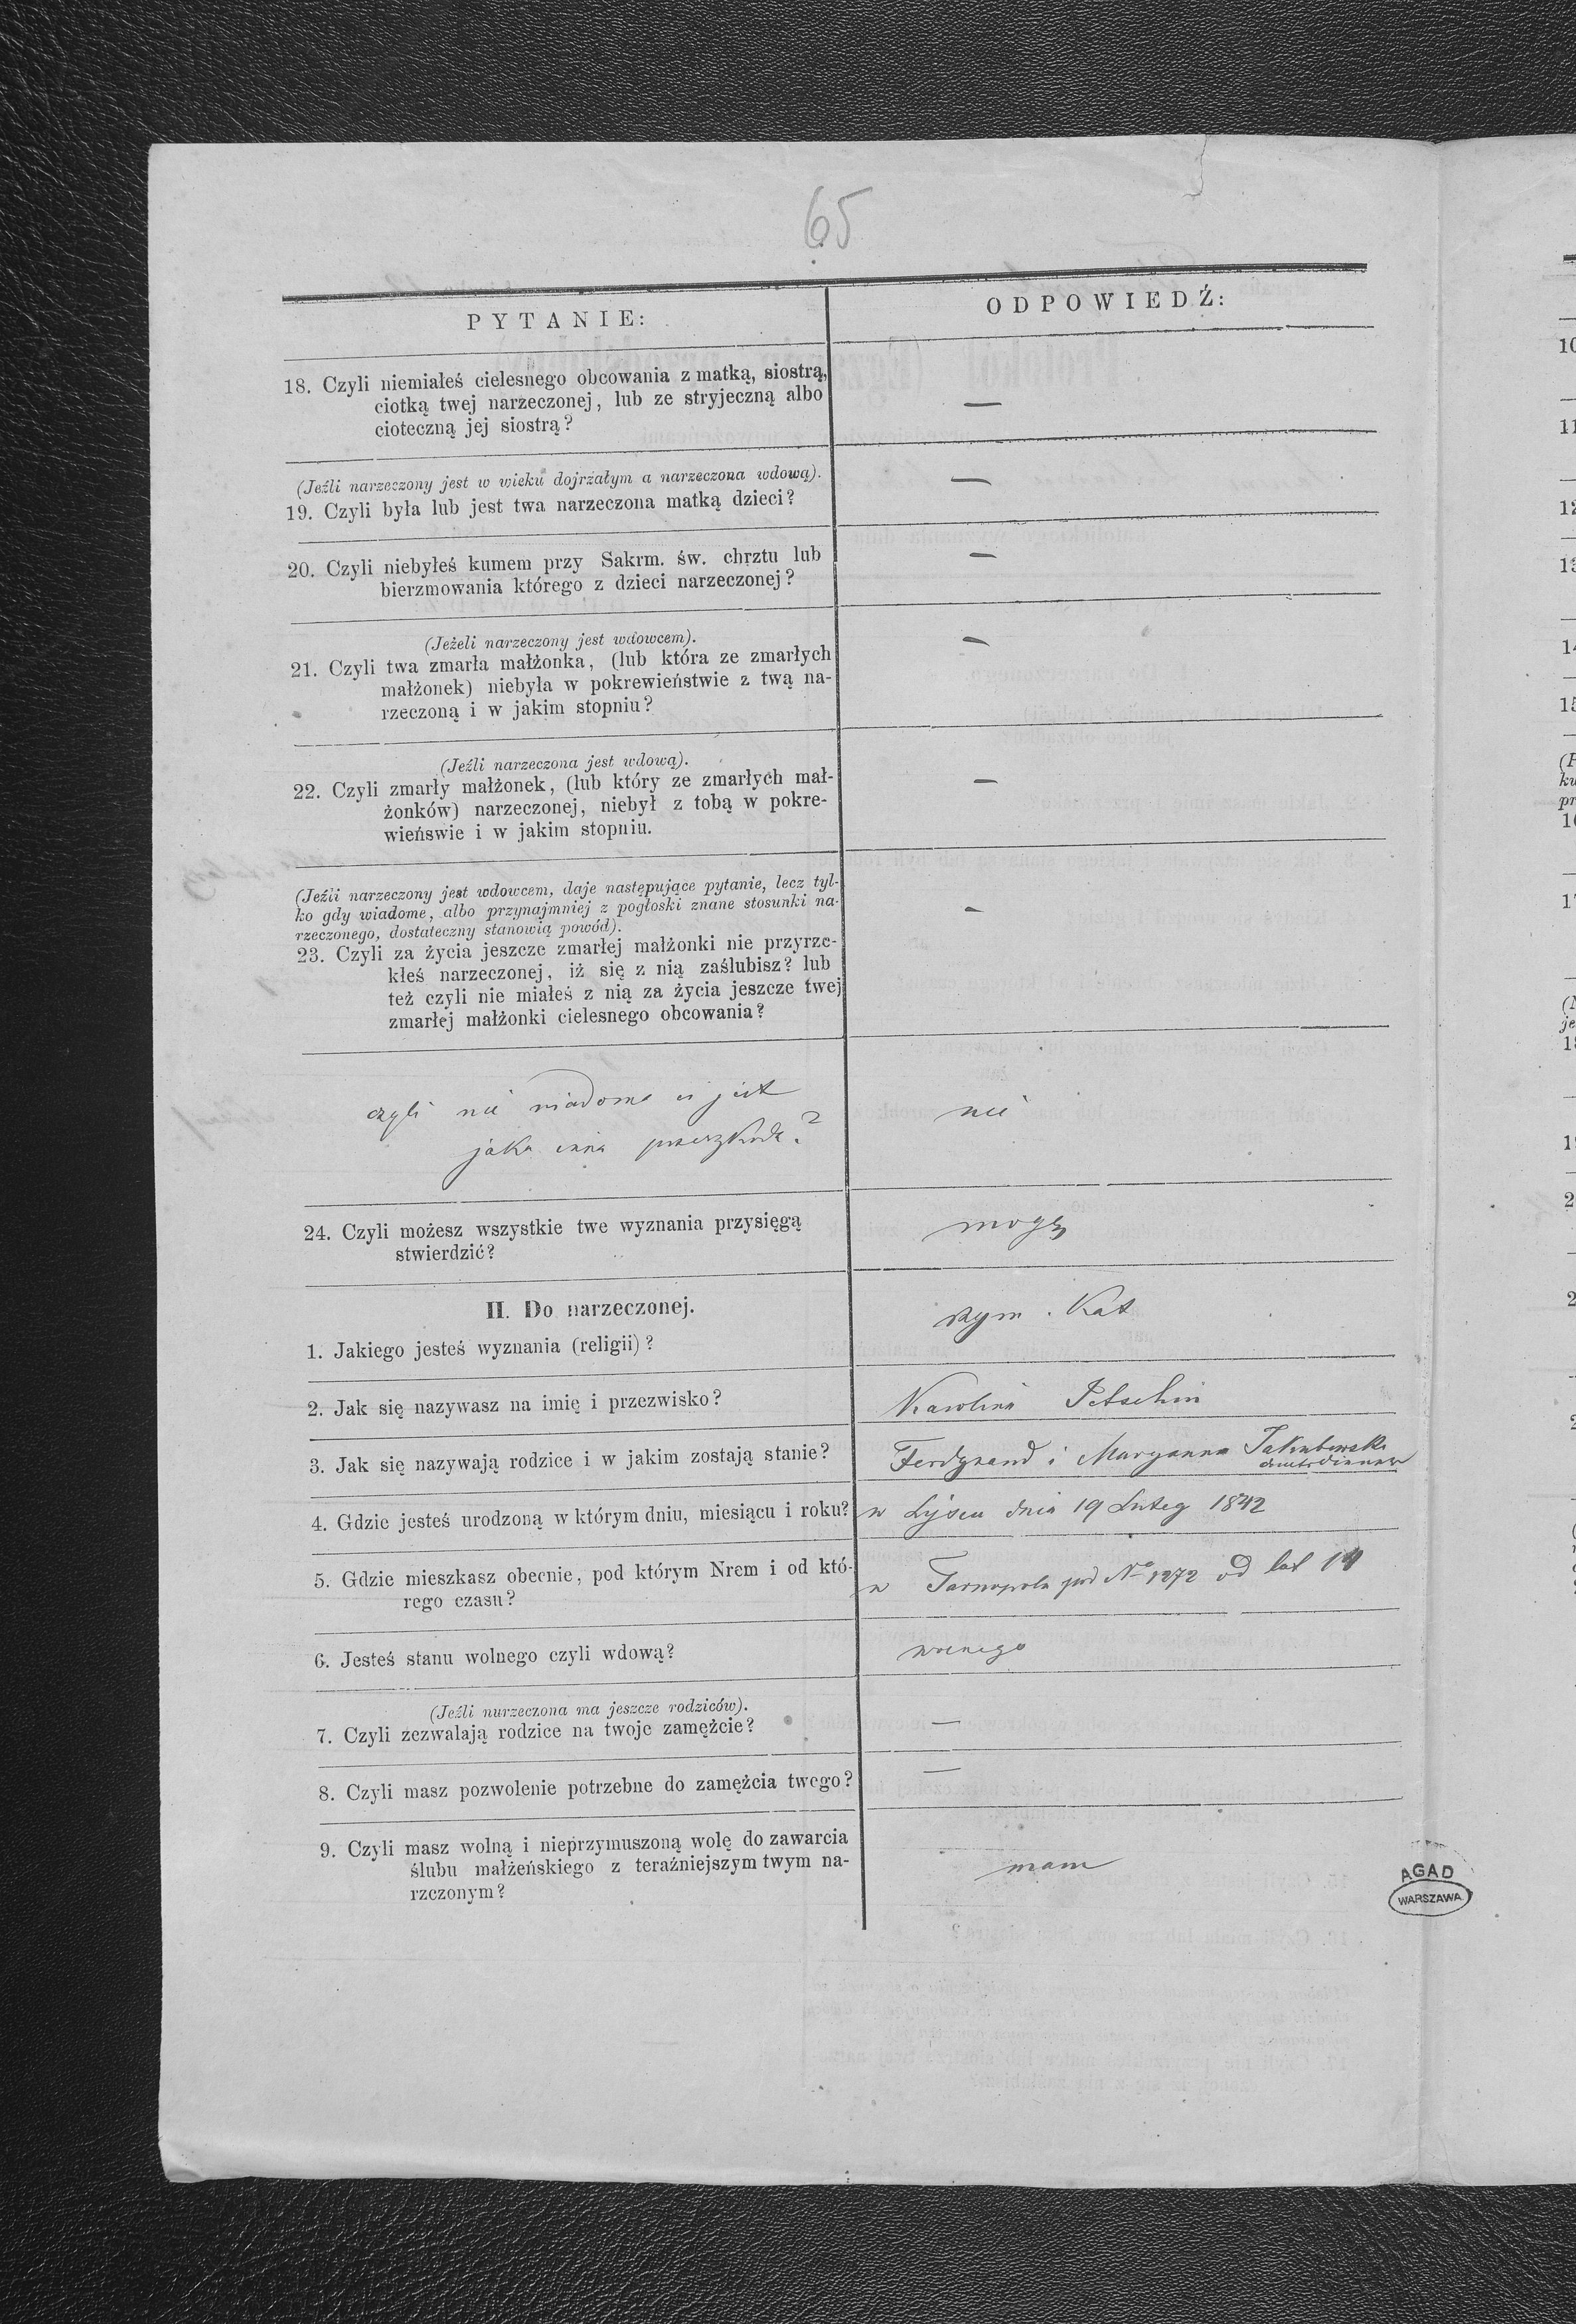 65
PYTANIE:
ODPOWIEDŹ:
18. Czyli niemiałeś cielesnego obcowania z matką, siostrą,
ciotką twej narzeczonej, lub ze stryjeczną albo
cioteczną jej siostrą?
—
(Jeźli narzeczony jest w wieku dojrzałym a narzeczona wdową).
19. Czyli była lub jest twa narzeczona matką dzieci?
—
20. Czyli niebyłeś kumem przy Sakrm. św. chrztu lub
bierzmowania którego z dzieci narzeczonej?
—
(Jeżeli narzeczony jest wdowcem).
21. Czyli twa zmarła małżonka, (lub która ze zmarłych
małżonek) niebyla w pokrewieństwie z twą na-
rzeczoną i w jakim stopniu?
—
(Jeźli narzeczona jest wdową).
22. Czyli zmarły małżonek, (lub który ze zmarłych mał-
żonków) narzeczonej, niebył z tobą w pokre-
wieńswie i w jakim stopniu.
—
(Jeźli narzeczony jest wdowcem, daje następujące pytanie, lecz tyl-
ko gdy wiadome, albo przynajmniej z pogłoski znane stosunki na-
rzeczonego, dostateczny stanowią powód).
23. Czyli za życia jeszcze zmarłej małżonki nie przyrze-
kłeś narzeczonej, iż się z nią zaślubisz? lub
też czyli nie miałeś z nią za życia jeszcze twej
zmarłej małżonki cielesnego obcowania?
—
czyli nie wiadomo ci jest
jaka inna przeszkoda?
nie
24. Czyli możesz wszystkie twe wyznania przysięgą
stwierdzić?
mogę
II. Do narzeczonej.
1. Jakiego jesteś wyznania (religii)?
rzym. Kat
2. Jak się nazywasz na imię i przezwisko?
Karolina
3. Jak się nazywają rodzice i w jakim zostają stanie?
Ferdynand i Maryanna Jakubowska
4. Gdzie jesteś urodzoną w którym dniu, miesiącu i roku?
w Łyścu dnia 19 Luteg 1842
5. Gdzie mieszkasz obecnie, pod którym Nrem i od któ-
rego czasu?
w Tarnopolu pod No 1272 od lat
6. Jesteś stanu wolnego czyli wdową?
wolnego
(Jeźli nurzeczona ma jeszcze rodziców).
7. Czyli zezwalają rodzice na twoje zamężcie?
—
8. Czyli masz pozwolenie potrzebne do zamężcia twego?
—
9. Czyli masz wolną i nieprzymuszoną wolę do zawarcia
ślubu małżeńskiego z teraźniejszym twym na-
rzczonym?
mam
AGAD
WARSZAWA